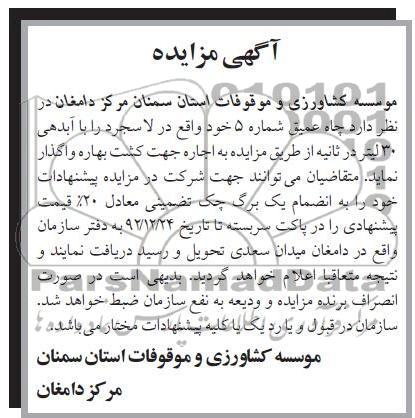 آگهی مزایده
موسسه کشاورزی و موقوفات استان سمنان مرکز دامغان در
نظر دارد چاه عمیق شماره ۵ خود واقع در لاسجرد را با آبدهی
۳۰ لیتر در ثانیه از طریق مزایده به اجاره جهت کشت بهاره واگذار
نماید. متقاضیان می توانند جهت شرکت در مزایده پیشنهادات
خود را به انضمام یک برگ چک تضمینی معادل ۲۰٪ قیمت
پیشنهادی را در پاکت سربسته تا تاریخ ۹۲/۱۲/۲۴ به دفتر سازمان
واقع در دامغان میدان سعدی تحویل و رسید دریافت نمایند و
نتیجه متعاقبا اعلام خواهد گردید. بدیهی است در صورت
انصراف برنده مزایده و ودیعه به نفع سازمان ضبط خواهد شد.
سازمان در قبول و یا رد یک یا کلیه پیشنهادات مختار می باشد.
موسسه کشاورزی و موقوفات استان سمنان
مرکز دامغان
ParsNamadData